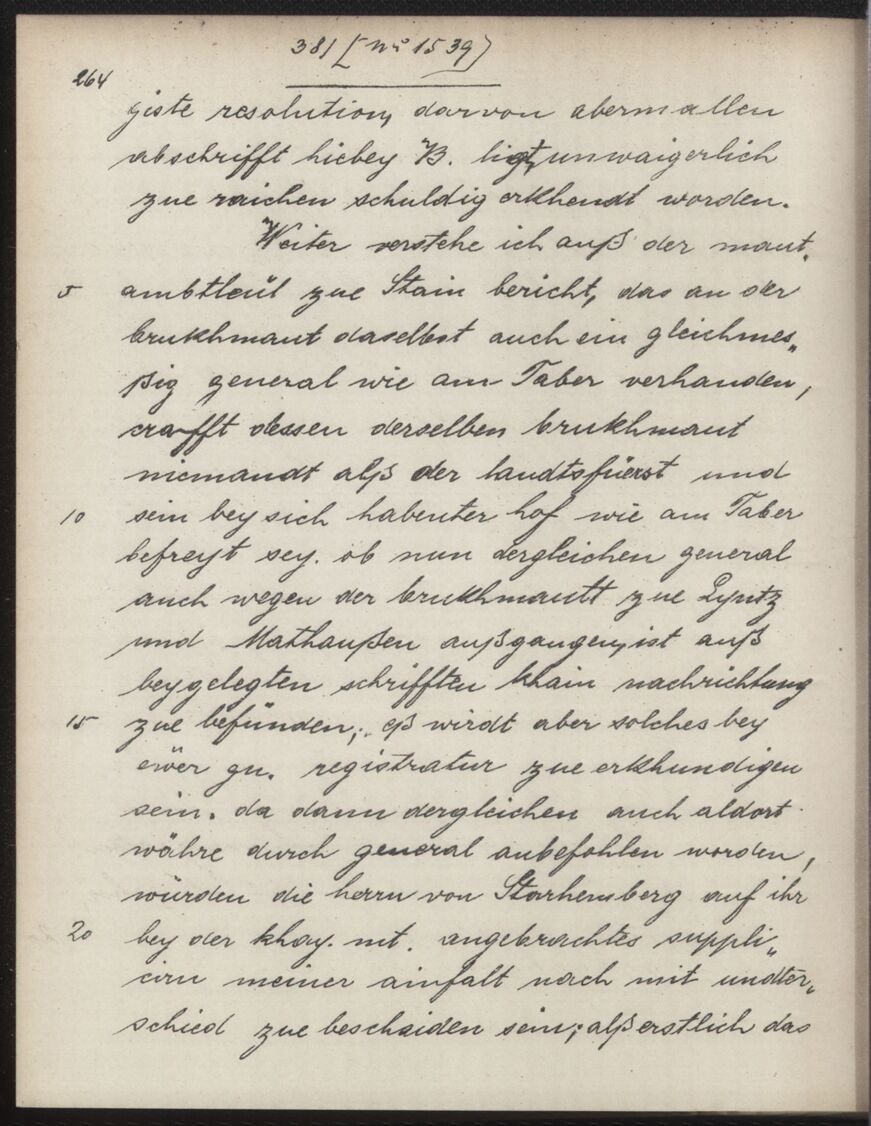 381 [nr 1539]
264
giste resolution, darvon abermallen
abschrifft hiebey B. ligt, unwaigerlich
zue raichen schuldig erkhendt worden.
Weiter verstehe ich auß der maut„
5 ambtleüt zue Stain bericht, das an der
brukhmaut daselbst auch ein gleichmes„
ßig general wie am Taber verhanden,
crafft dessen derselben brukhmaut
niemandt alß der landtsfüerst und
10 sein bey sich habenter hof wie am Taber
befreyt sey. ob nun dergleichen general
auch wegen der brukhmautt zue Lyntz
und Mathaußen außgangen, ist auß
beygelegten schrifften khain nachrichtung
15 zue befünden; eß wirdt aber solches bey
ewer gn. registratur zue erkhundigen
sein. da dann dergleichen auch aldort
währe durch general anbefohlen worden,
würden die herrn von Starhemberg auf ihr
20 bey der khay. mt. angebrachtes suppli„
cirn meiner ainfalt nach mit undter„
schied zue bescheiden sein; alß erstlich das